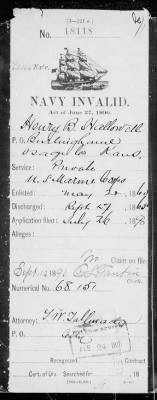 [3-221 a.]
No. 18118
NAVY INVALID.
Act of June 27, 1890.
Henry R. Hallowell
P. O. Burlingame
Osage Co Kans.
Service: Private
U. S. Marine Corps
Enlisted: May 20, 186
Discharged: Sept 27, 186
Application filed: July 26, 189
Alleges:
No Claim on file
Sept. 1890
Clerk.
Numerical No. 68 151
Attorney: T W Tallmadge
City
Recognized Contract
Cert. of Dis. Searched for 18